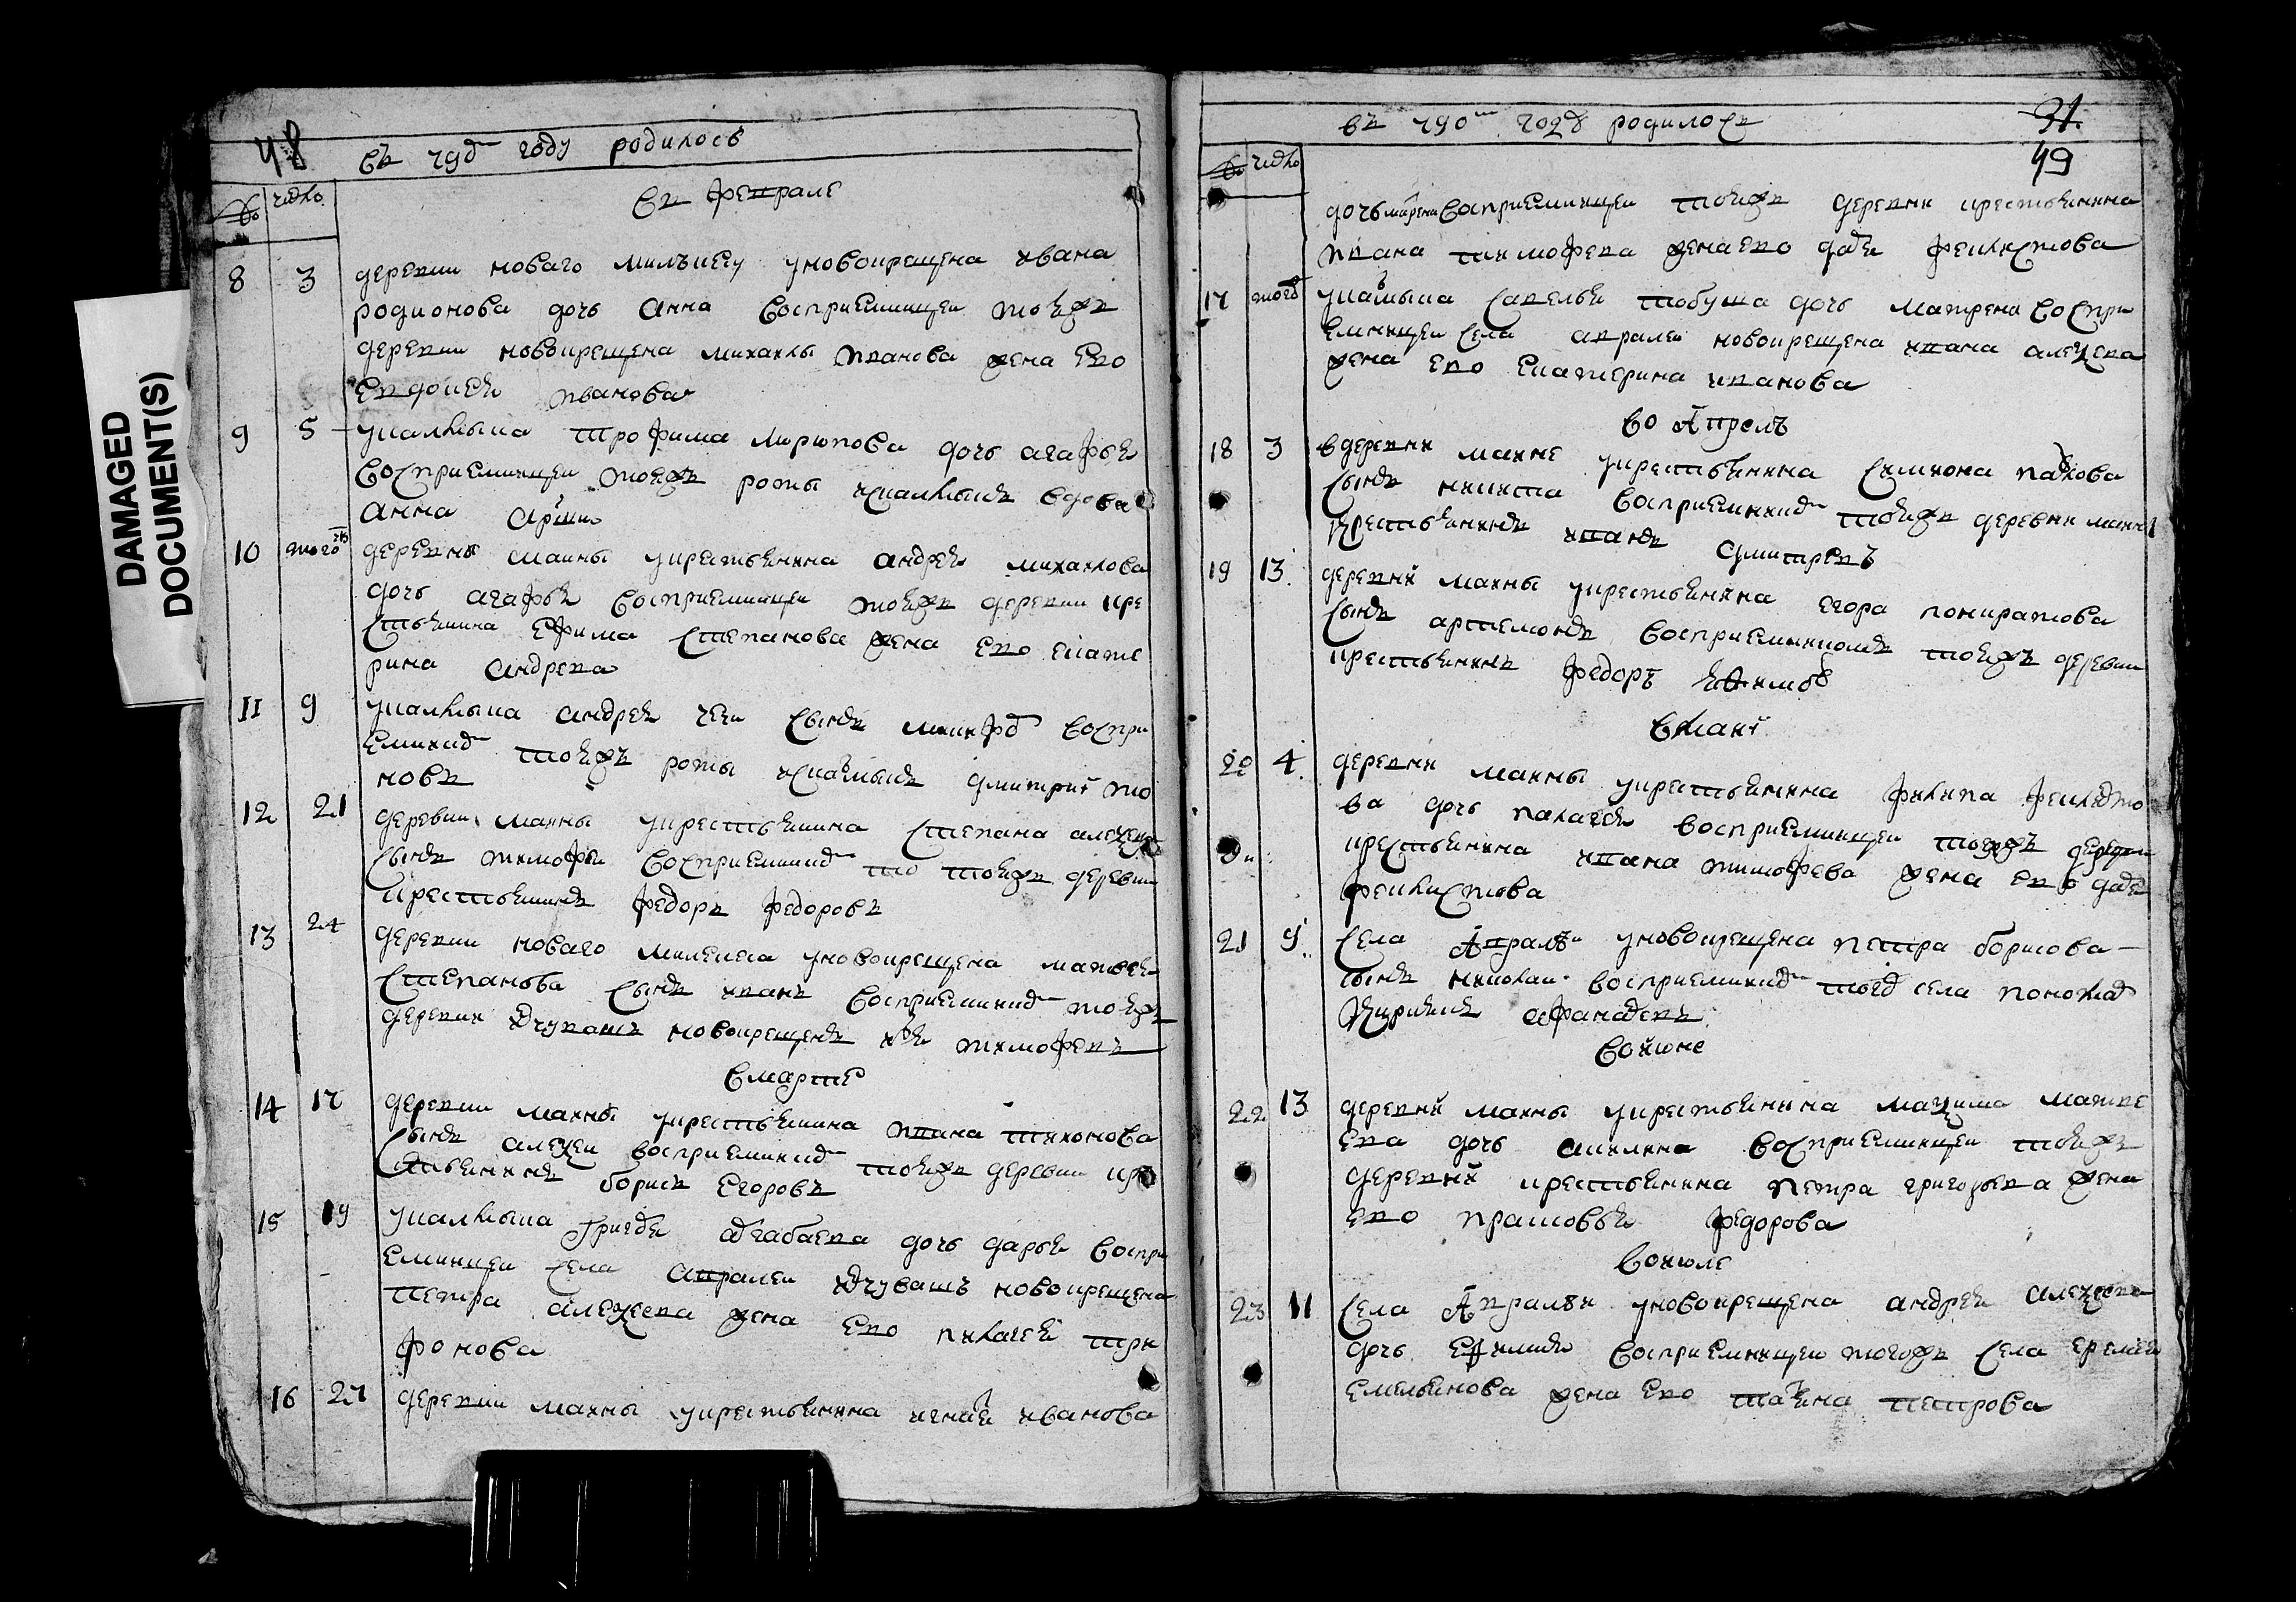 DAMAGED
DOCUMENT(S)
48
въ 790м году родилось
число
въ феврале
8 3 деревни новаго милькеу уновокрещена ивана
родионова дочь анна восприемницеи тоежъ
деревни новокрещена михаилы иванова жена ево
евдокея иванова
9 5 укалмыка трофима дочь агафья
восприемницеи тоежъ роты искалмыкъ вдова
анна
10 того деревны маины укрестьянина андрея михаилова
дочь агафья восприемницеи тоежъ деревни кре
стьянина ефима степанова жена ево екате
рина андрева
11 9 укалмыка андрея сынъ воспри
емникомъ тоежъ роты искалмыкъ дмитрий
новъ
12 21 деревни маины укрестьянина степана алексева
сынъ тимофеи восприемникомъ то тоежъ деревни
крестьянинъ федоръ федоровъ
13 24 деревни новаго милкеа уновокрещена матвея
степанова сынъ иванъ восприемникомъ тоежъ
деревни изчувашъ новокрещенъ тимофевъ
в марте
14 17 деревни маины укрестьянина ивана тихонова
сынъ алексеи восприемникомъ тоежъ деревни кре
стьянинъ борисъ егоровъ
15 19 укалмыка дочь дарья воспри
емницеи села авралеи изчувашъ новокрещена
петра алексеева жена ево пилагея три
фонова
16 27 деревни маины укрестьянина игнатея иванова
въ 790м году родилось
31
49
число
дочь марена восприемницеи тоежъ деревни крестьянина
ивана тимофева жена ево феклистова
17 того укалмыка савелья дочь матрена воспри
емницеи села авралеи новокрещена ивана алексева
жена ево екатерина иванова
во апреле
18 3 вдеревни маине укрестьянина симиона
сынъ никита восприемникомъ тоежъ деревни маины
крестьянинъ иванъ дмитревъ
19 13. деревни маины укрестьянина егора понкратова
сынъ артемонъ восприемникомъ тоежъ деревни
крестьянинъ федоръ
вмаиї
20 4. деревни маины укрестьянина филипа феклисто
ва дочь палагея восприемницеи тоежъ деревни
крестьянина ивана тимофева жена ево
феклистова
21 9. села авралеи уновокрещена петра борисова
сынъ николаи восприемникомъ того села пономарь
кирилъ афанасевъ
воиюне
22 13 деревни маины укрестьянина максима матве
ева дочь акилина восприемницеи тоежъ
деревни крестьянина петра григорьева жена
ево прасковья федорова
воиюле
23 11 села авралеи уновокрещена андрея алексеева
дочь ефимия восприемницеи тогожъ села еремея
емельянова жена ево татьяна петрова